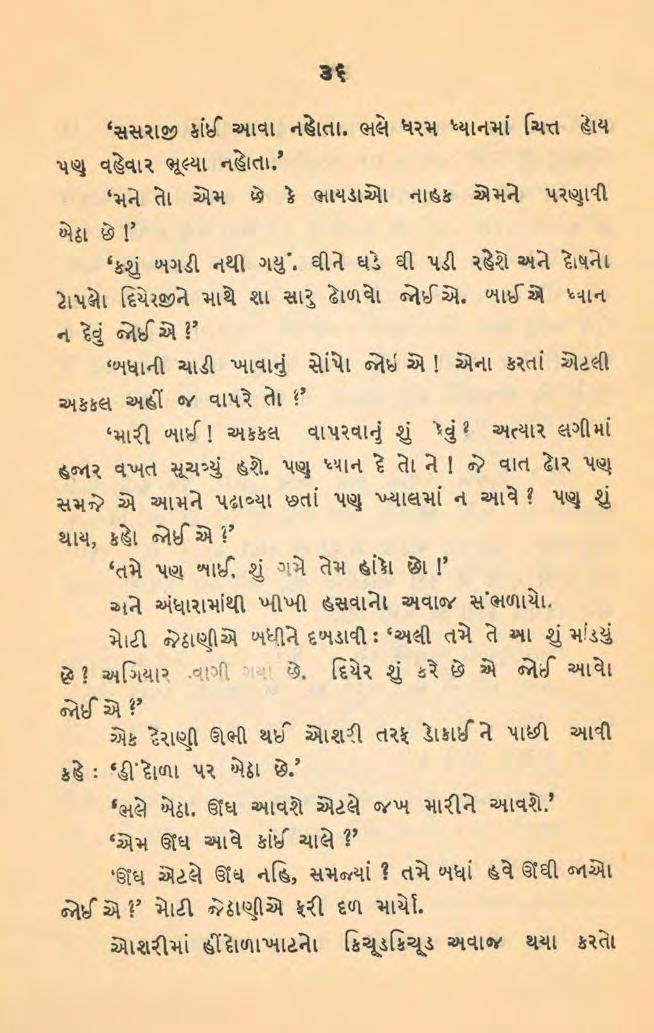 ૩૬
‘સસરાજી કાંઈ આવા નહોતા. ભલે ધરમ ધ્યાનમાં ચિત્ત હોય
પણ વહેવાર ભૂલ્યા નહોતા.’
‘મને તો એમ છે કે ભાયડાઓ નાહક એમને પરણાવી
બેઠા છે !’
‘કશું બગડી નથી ગયું. ઘીને ઘડે ઘી પડી રહેશે અને દોષનો
ટોપલો દિયેરજીને માથે શા સારુ ઢોળવો જોઈએ. બાઈએ ધ્યાન
ન દેવું જોઈએ ?’
‘બધાની ચાડી ખાવાનું સોંપો જોઇએ ! એના કરતાં એટલી
અકકલ અહીં જ વાપરે તો ?’
‘મારી બાઈ ! અકકલ વાપરવાનું શું કેવું ? અત્યાર લગીમાં
હજાર વખત સૂચવ્યું હશે. પણ ધ્યાન દે તો ને ! જે વાત ઢોર પણ
સમજે એ આમને પઢાવ્યા છતાં પણ ખ્યાલમાં ન આવે ? પણ શું
થાય, કહો જોઈએ ?’
‘તમે પણ બાઈ, શું ગમે તેમ હાંકો છો !’
અને અંધારામાંથી ખીખી હસવાનો અવાજ સંભળાયો.
મોટી જેઠાણીએ બધીને દબડાવી : ‘અલી તમે તે આ શું માંડ્યું
છે ? અગિયાર વાગી ગયા છે. દિયેર શું કરે છે એ જોઈ આવો
જોઈએ ?’
એક દેરાણી ઊભી થઈ ઓશરી તરફ ડોકાઈને પાછી આવી
કહે : ‘હીંદોળા પર બેઠા છે.’
‘ભલે બેઠા. ઊંઘ આવશે એટલે જખ મારીને આવશે.’
‘એમ ઊંઘ આવે કાંઈ ચાલે ?’
‘ઊંઘ એટલે ઊંઘ નહિ, સમજ્યાં ? તમે બધાં હવે ઊંઘી જાઓ
જોઈએ ?’ મોટી જેઠાણીએ ફરી દળ માર્યો.
ઓશરીમાં હીંદોળાખાટનો કિચૂડકિચૂડ અવાજ થયા કરતો